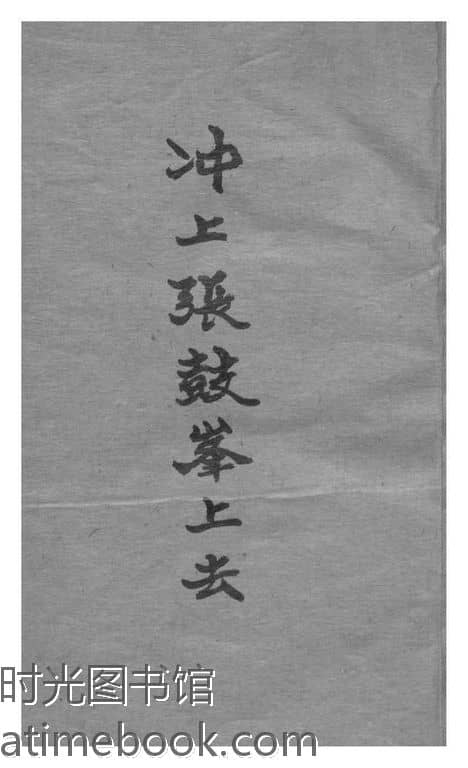 冲上張鼓峯上去
时光图书馆
atimebook.com